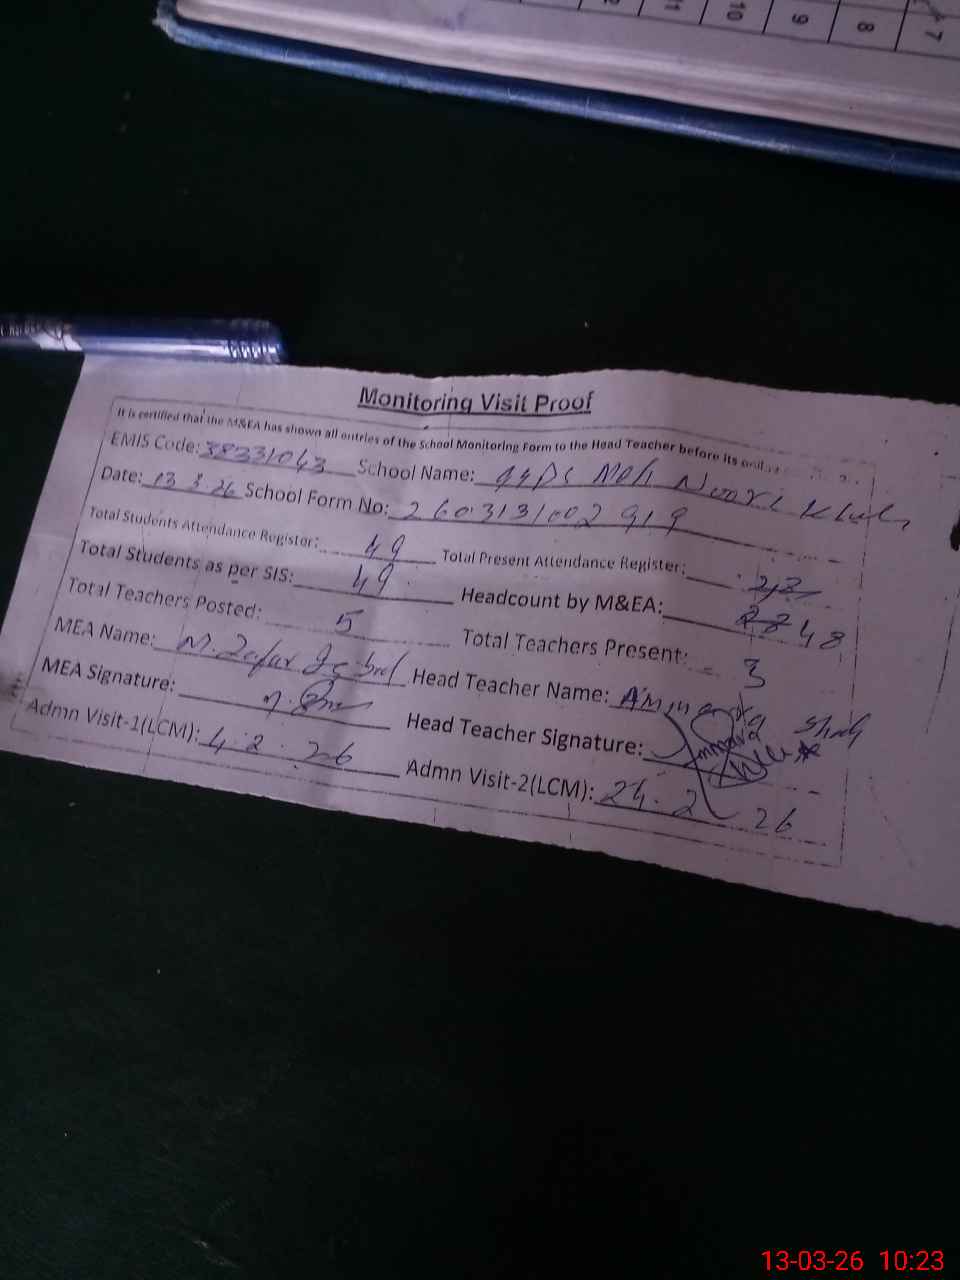 11 10 9 8 7
Monitoring Visit Proof
It is certified that the M&EA has shown all entries of the School Monitoring Form to the Head Teacher before its
EMIS Code: 38331043 School Name: GGPS Moh Noora
Date: 13 3 26 School Form No: 2603131002919
Total Students Attendance Register: 49 Total Present Attendance Register:
Total Students as per SIS: 49 Headcount by M&EA: 28 48
Total Teachers Posted: 5 Total Teachers Present: 3
MEA Name: M. Zafar Iqbal Head Teacher Name:
MEA Signature: Head Teacher Signature:
Admn Visit-1(LCM): 4.2.26 Admn Visit-2(LCM): 24.2 26
13-03-26 10:23